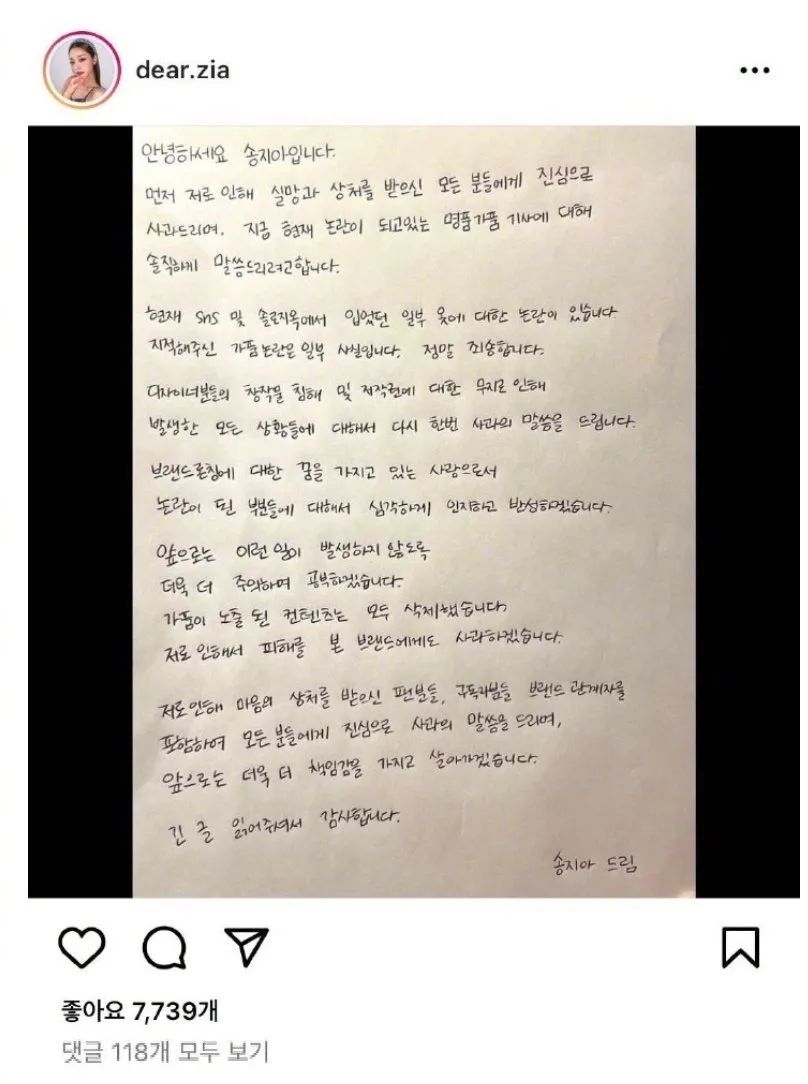 dear.zia
안녕하세요 송지아입니다.
먼저 저로 인해 실망과 상처를 받으신 모든 분들에게 진심으로
사과드리며, 지금 현재 논란이 되고있는 명품가품 기사에 대해
솔직하게 말씀드리려고합니다.
현재 SNS 및 솔로지옥에서 입었던 일부 옷에 대한 논란이 있습니다
지적해주신 가품논란은 일부 사실입니다. 정말 죄송합니다.
디자이너분들의 창작물 침해 및 저작권에 대한 무지로 인해
발생한 모든 상황들에 대해서 다시 한번 사과의 말씀을 드립니다.
브랜드론칭에 대한 꿈을 가지고 있는 사람으로서
논란이 된 부분들에 대해서 심각하게 인지하고 반성하겠습니다.
앞으로는 이런 일이 발생하지 않도록
더욱 더 주의하며 공부하겠습니다.
가품이 노출 된 컨텐츠는 모두 삭제했습니다
저로인해서 피해를 본 브랜드에게도 사과하겠습니다.
저로인해 마음의 상처를 받으신 팬분들, 구독자분들 브랜드 관계자를
포함하여 모든분들에게 진심으로 사과의 말씀을 드리며,
앞으로는 더욱 더 책임감을 가지고 살아가겠습니다.
긴 글 읽어주셔서 감사합니다.
송지아 드림
좋아요 7,739개
댓글 118개 모두 보기